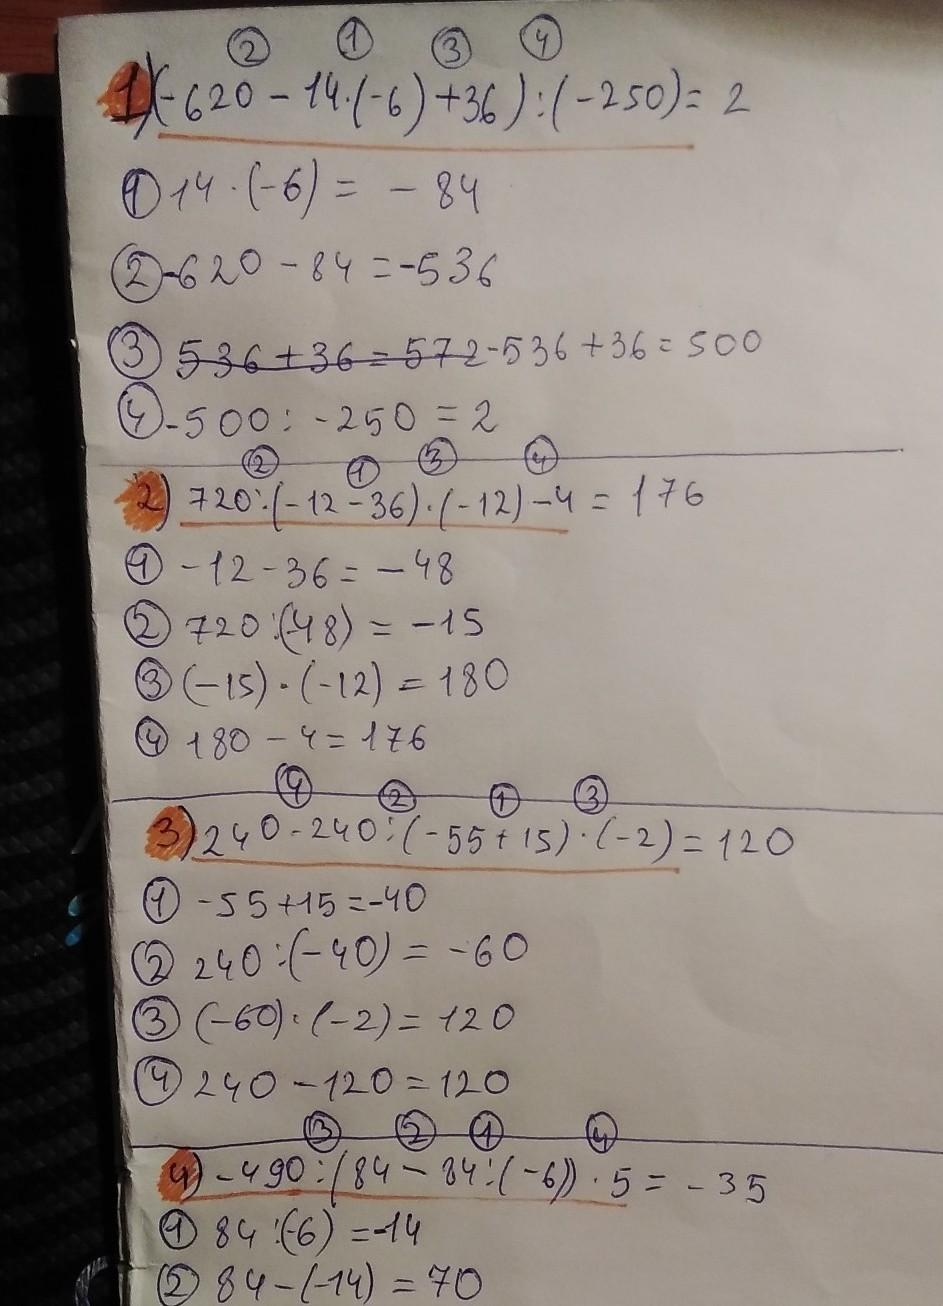 ② ① ③ ④
1) (-620 - 14·(-6) + 36) : (-250) = 2
① 14 · (-6) = - 84
② -620 - 84 = -536
③ 536 + 36 = 572 -536 + 36 = 500
④ -500 : -250 = 2
② ① ③ ④
2) 720 : (-12 - 36) · (-12) - 4 = 176
① -12 - 36 = -48
② 720 : (-48) = -15
③ (-15) · (-12) = 180
④ 180 - 4 = 176
④ ② ① ③
3) 240 - 240 : (-55 + 15) · (-2) = 120
① -55 + 15 = -40
② 240 : (-40) = -60
③ (-60) · (-2) = 120
④ 240 - 120 = 120
③ ② ① ④
4) -490 : (84 - 84 : (-6)) · 5 = -35
① 84 : (-6) = -14
② 84 - (-14) = 70